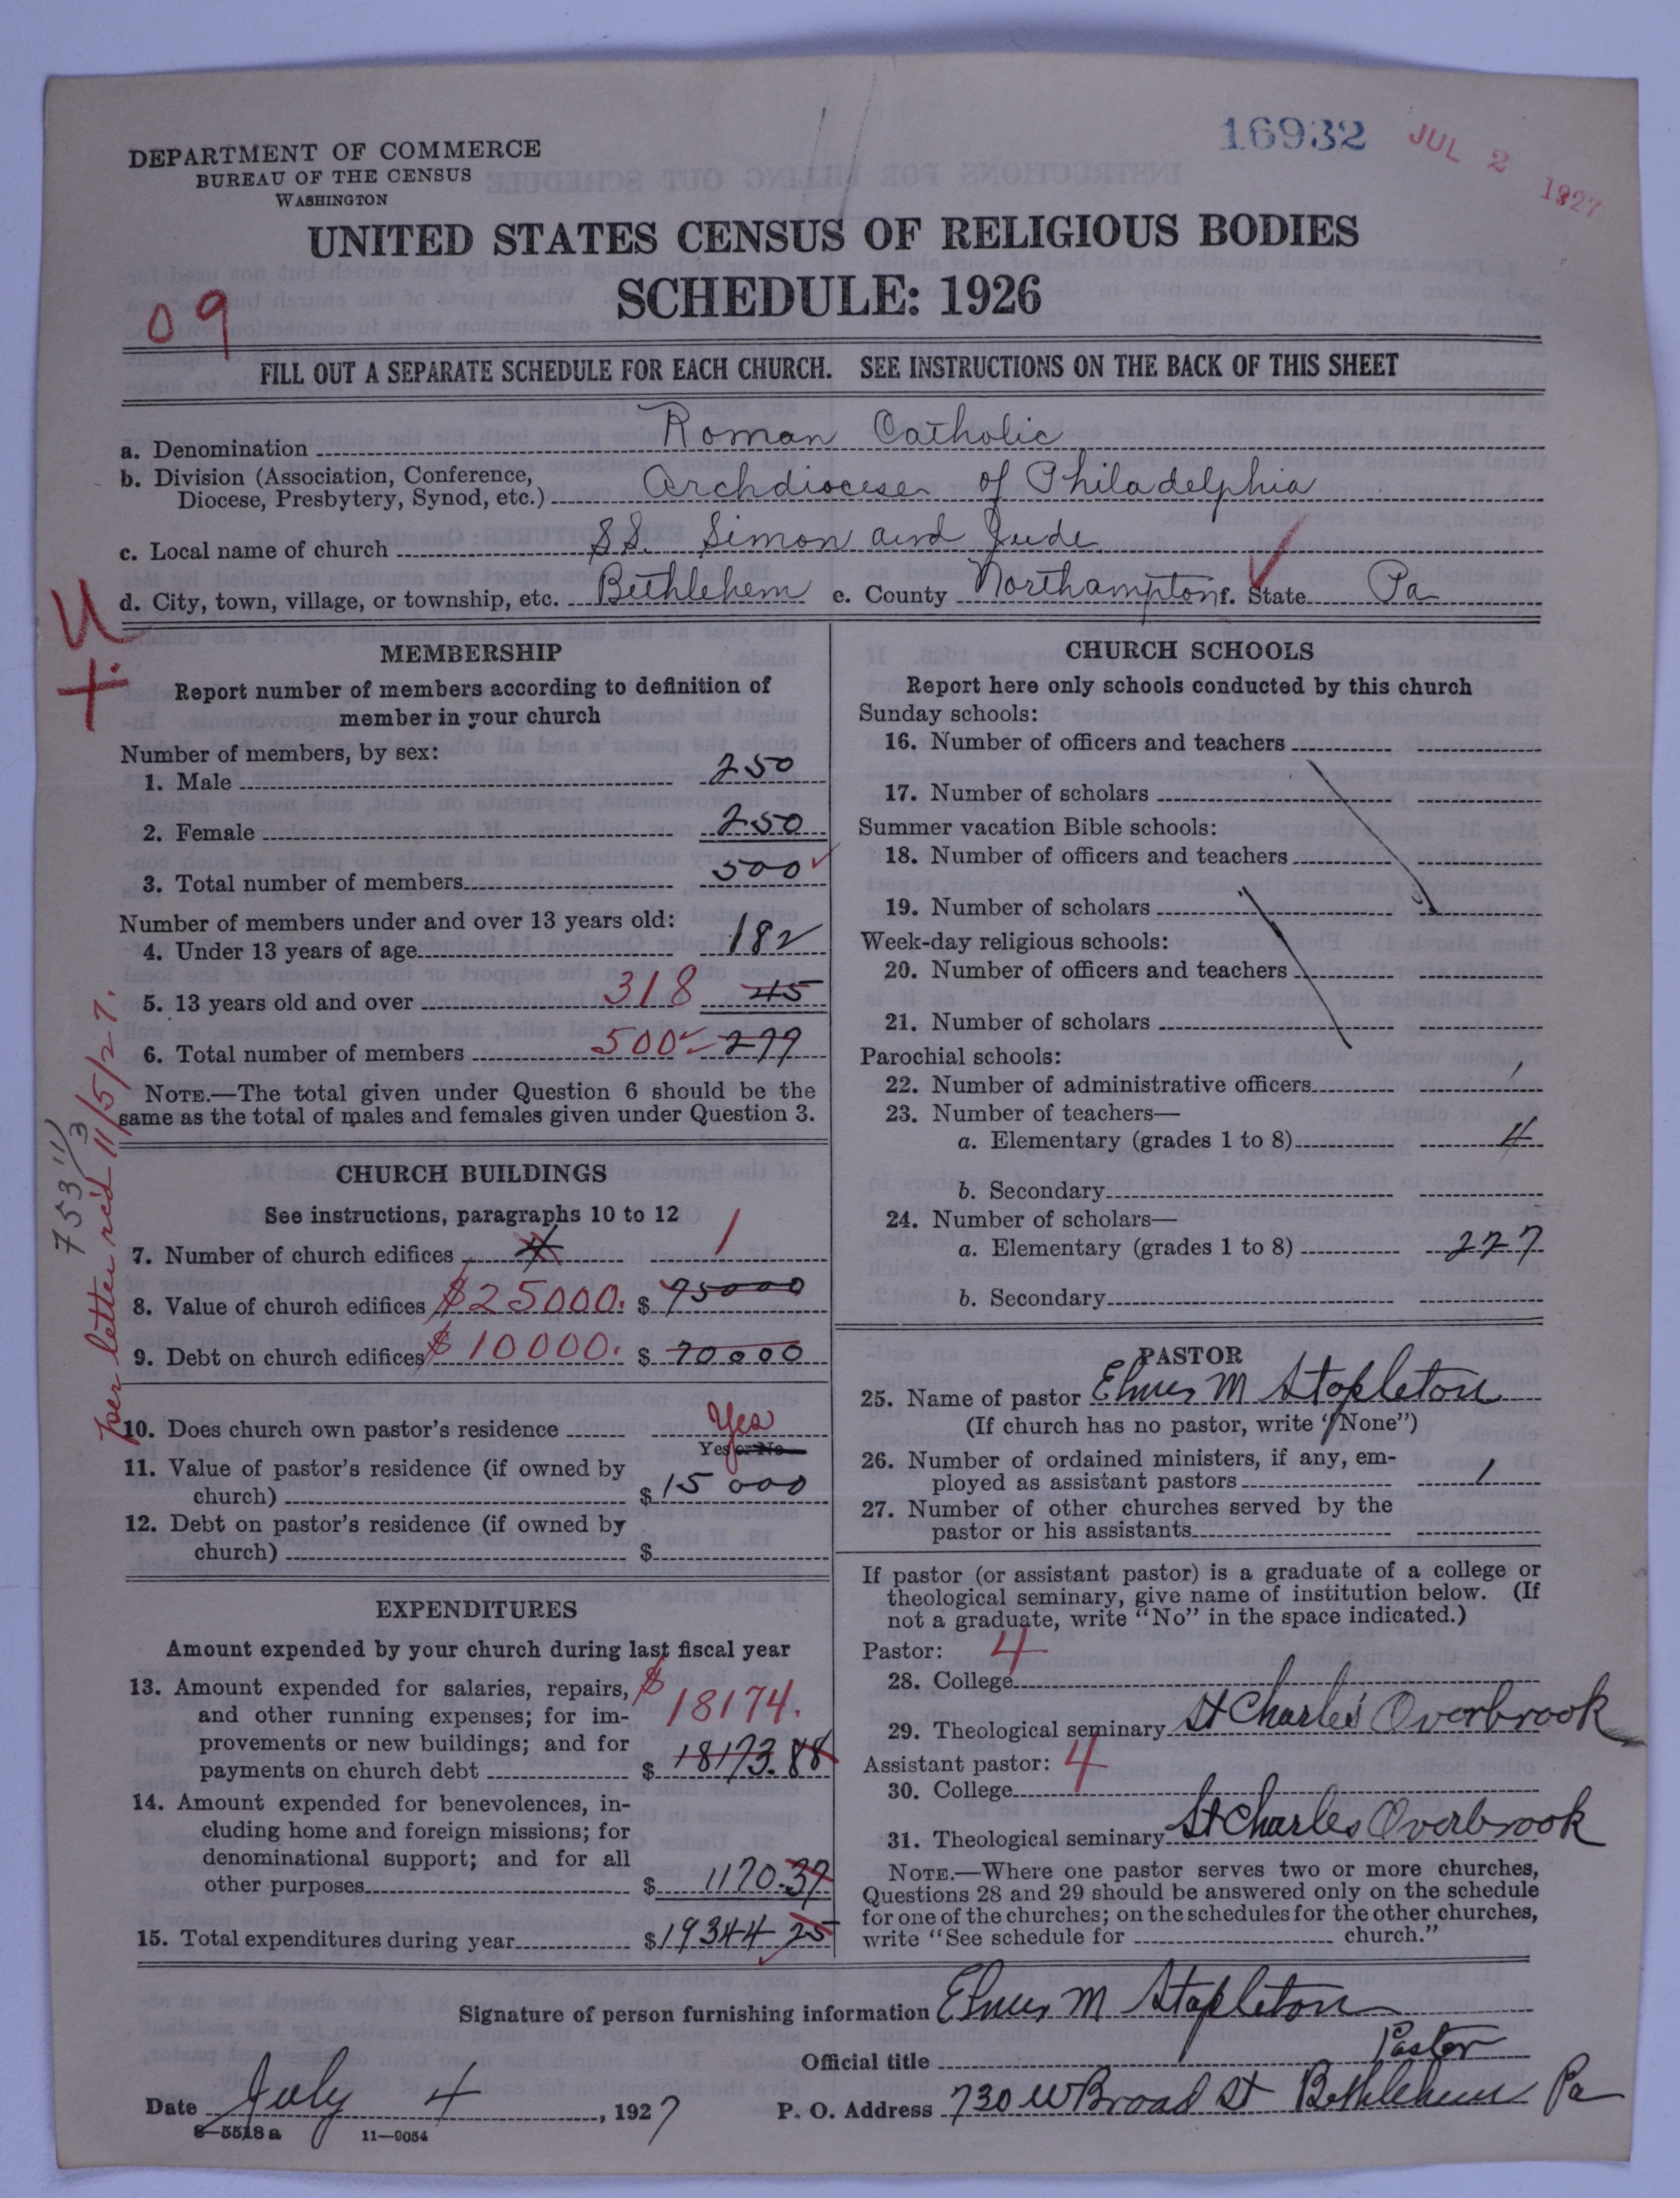 16932
JUL 2 1927
DEPARTMENT OF COMMERCE
BUREAU OF THE CENSUS
WASHINGTON
UNITED STATES CENSUS OF RELIGIOUS BODIES
SCHEDULE: 1926
09
FILL OUT A SEPARATE SCHEDULE FOR EACH CHURCH. SEE INSTRUCTIONS ON THE BACK OF THIS SHEET
a. Denomination Roman Catholic
b. Division (Association, Conference,
Diocese, Presbytery, Synod, etc.) Archdiocese of Philadelphia
c. Local name of church SS. Simon and Jude
d. City, town, village, or township, etc. Bethlehem e. County Northampton f. State Pa
U
+
MEMBERSHIP
Report number of members according to definition of
member in your church
Number of members, by sex:
1. Male 250
2. Female 250
3. Total number of members 500
Number of members under and over 13 years old:
4. Under 13 years of age 182
5. 13 years old and over 318 45
6. Total number of members 500
NOTE.—The total given under Question 6 should be the
same as the total of males and females given under Question 3.
753 11/3
per letter rec'd 11/5/27.
CHURCH BUILDINGS
See instructions, paragraphs 10 to 12
7. Number of church edifices 4 1
8. Value of church edifices $25000. $ 75000
9. Debt on church edifices $10000. $ 70000
10. Does church own pastor's residence Yes
Yes or No
11. Value of pastor's residence (if owned by
church) $ 15 000
12. Debt on pastor's residence (if owned by
church) $
EXPENDITURES
Amount expended by your church during last fiscal year
13. Amount expended for salaries, repairs, $
and other running expenses; for im- 18174.
provements or new buildings; and for
payments on church debt $ 18173.88
14. Amount expended for benevolences, in-
cluding home and foreign missions; for
denominational support; and for all
other purposes $ 1170.37
15. Total expenditures during year $19344 25
CHURCH SCHOOLS
Report here only schools conducted by this church
Sunday schools:
16. Number of officers and teachers
17. Number of scholars
Summer vacation Bible schools:
18. Number of officers and teachers
19. Number of scholars
Week-day religious schools:
20. Number of officers and teachers
21. Number of scholars
Parochial schools:
22. Number of administrative officers 1
23. Number of teachers—
a. Elementary (grades 1 to 8) 4
b. Secondary
24. Number of scholars—
a. Elementary (grades 1 to 8) 227
b. Secondary
PASTOR
25. Name of pastor Elmer M Stapleton
(If church has no pastor, write "None")
26. Number of ordained ministers, if any, em-
ployed as assistant pastors 1
27. Number of other churches served by the
pastor or his assistants
If pastor (or assistant pastor) is a graduate of a college or
theological seminary, give name of institution below. (If
not a graduate, write "No" in the space indicated.)
Pastor: 4
28. College
29. Theological seminary St Charles Overbrook
Assistant pastor: 4
30. College
31. Theological seminary St Charles Overbrook
NOTE.—Where one pastor serves two or more churches,
Questions 28 and 29 should be answered only on the schedule
for one of the churches; on the schedules for the other churches,
write "See schedule for church."
Signature of person furnishing information Elmer M Stapleton
Official title Pastor
Date July 4, 1927 P. O. Address 730 W Broad St Bethlehem Pa
8—5518a 11—9054